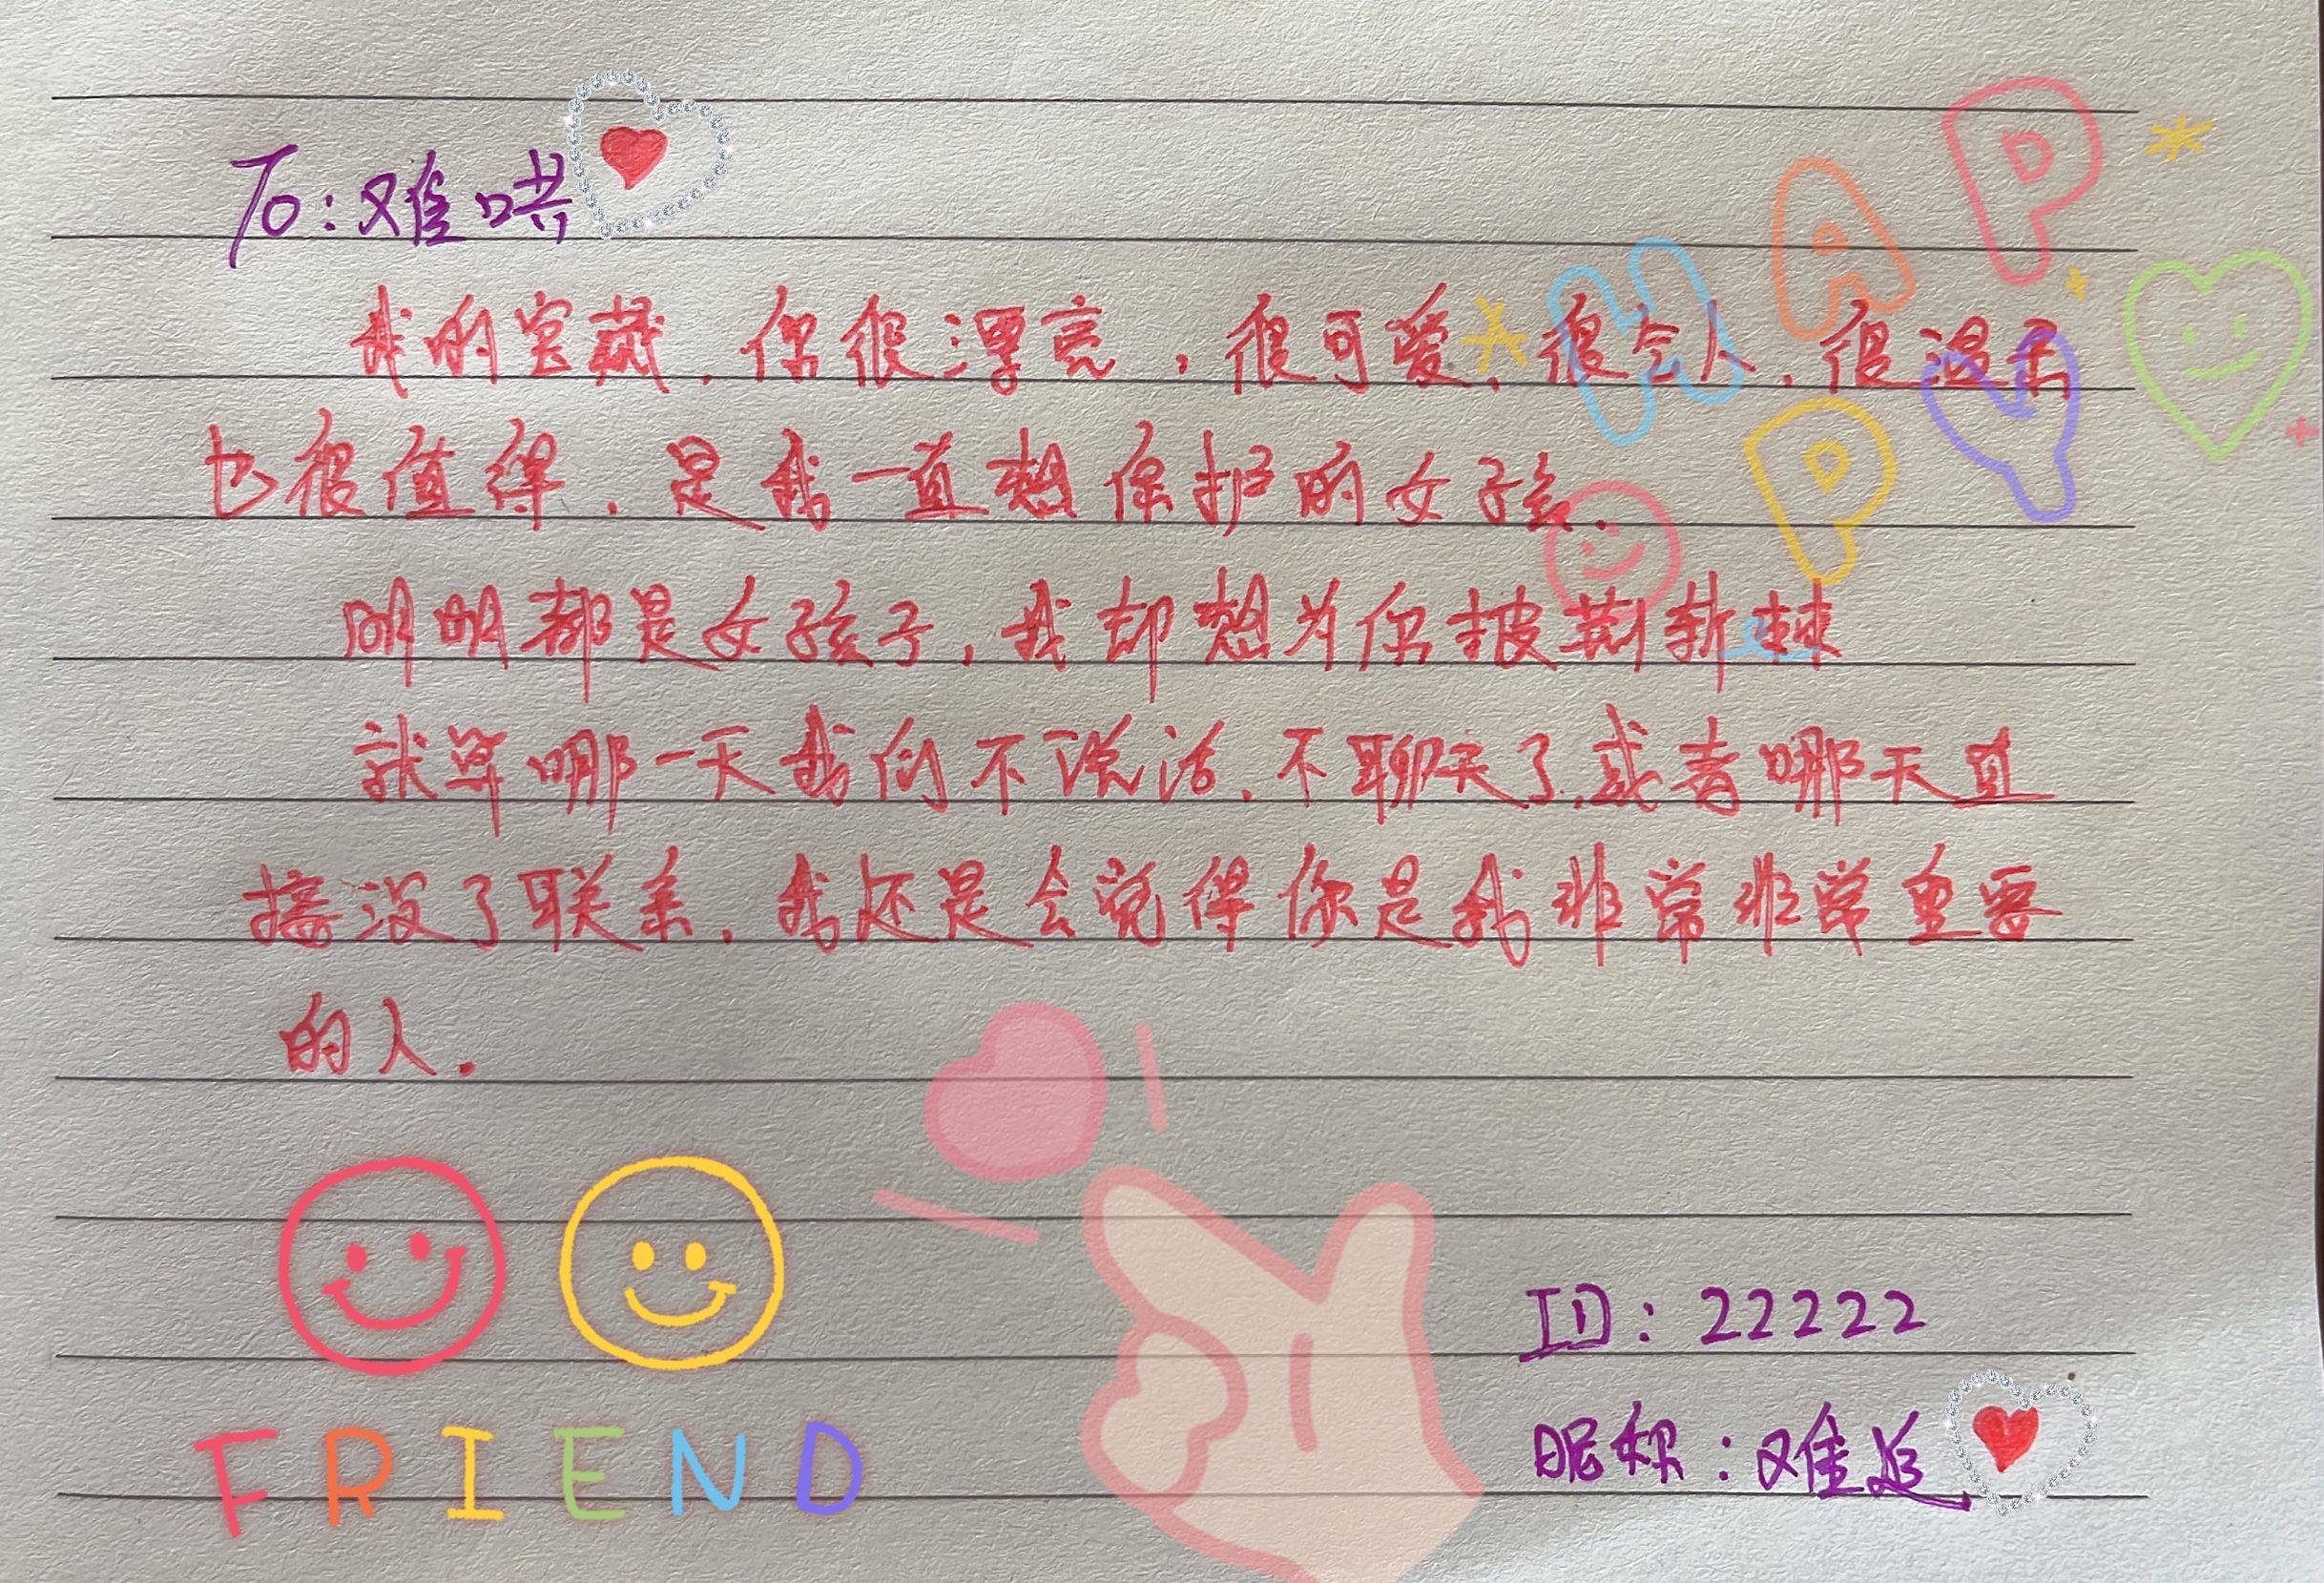 To:难哄
HAP
PY
我的宝藏，你很漂亮，很可爱，很人，很温柔
也很值得，是我一直想保护的女孩.
明明都是女孩子，我却想为你披荆斩棘
就算哪一天我们不说话，不聊天了，或者哪天直
接没了联系，我还是会觉得你是我非常非常重要
的人.
FRIEND
ID：22222
昵称：难追